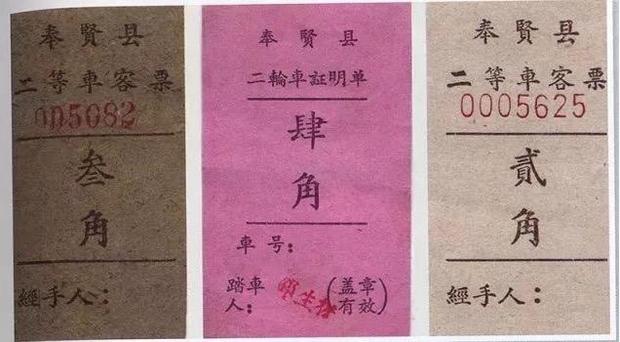 奉賢县
二等車客票
005082
叁角
經手人：
奉賢县
二輪車証明单
肆角
車号：
踏車人：
(盖章有效)
奉賢县
二等車客票
0005625
貳角
經手人：